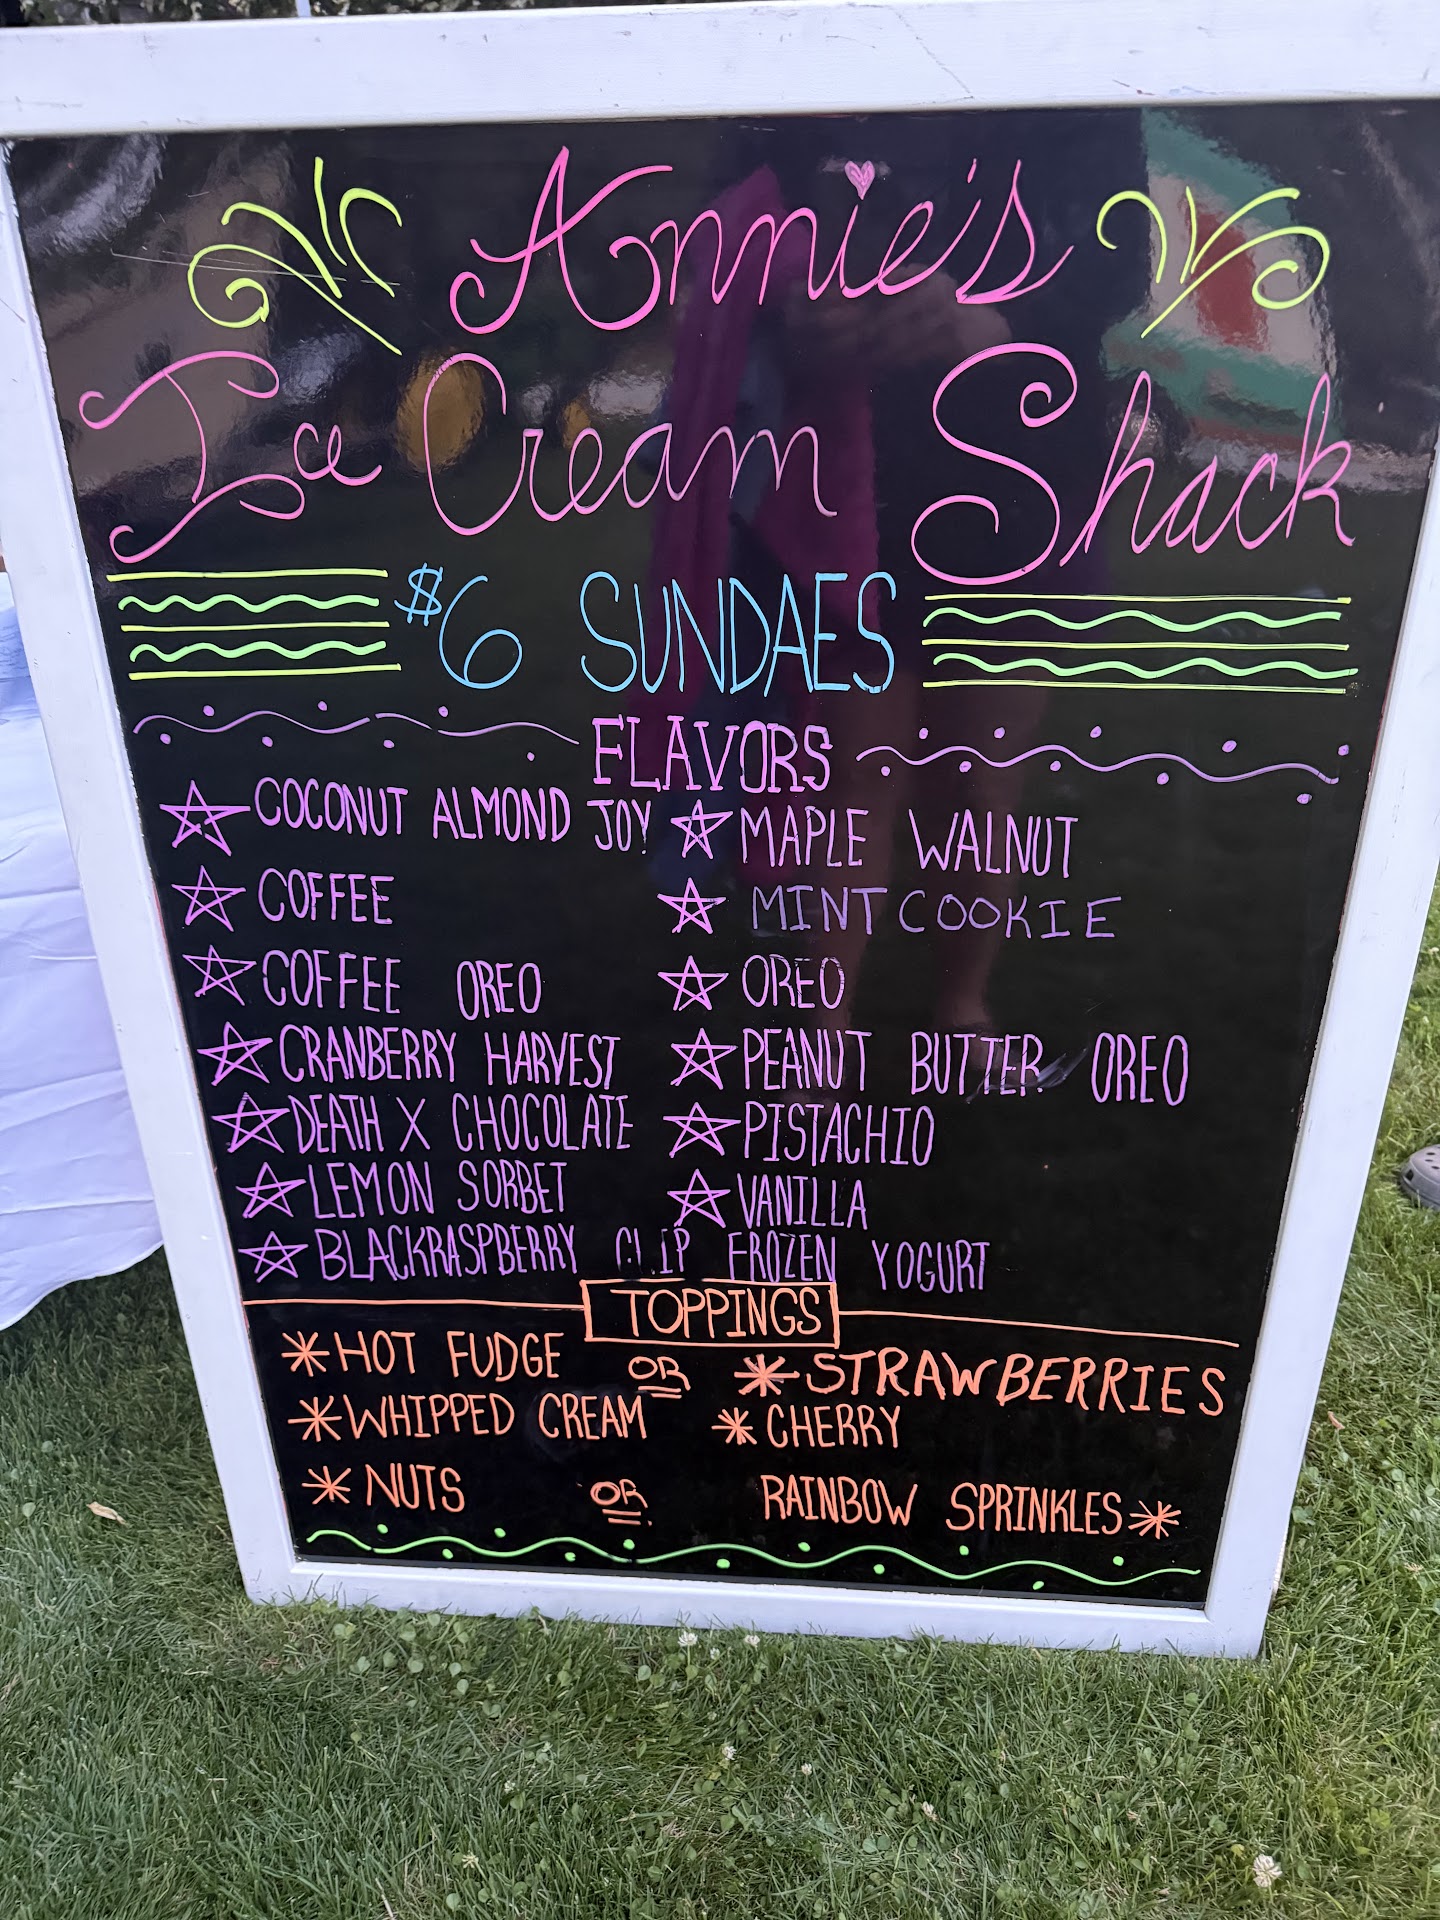 Annie's
Ice Cream Shack
$6 SUNDAES
FLAVORS
COCONUT ALMOND JOY
COFFEE
COFFEE OREO
CRANBERRY HARVEST
DEATH X CHOCOLATE
LEMON SORBET
MAPLE WALNUT
MINT COOKIE
OREO
PEANUT BUTTER OREO
PISTACHIO
VANILLA
BLACKRASPBERRY CLIP FROZEN YOGURT
TOPPINGS
HOT FUDGE OR STRAWBERRIES
WHIPPED CREAM CHERRY
NUTS OR RAINBOW SPRINKLES